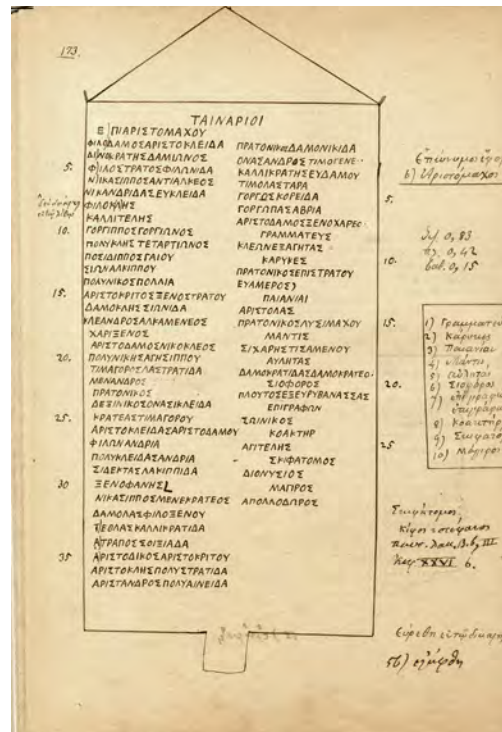 173.
ΤΑΙΝΑΡΙΟΙ
ΕΠΙΑΡΙΣΤΟΜΑΧΟΥ
ΦΙΛΟΔΑΜΟΣΑΡΙΣΤΟΚΛΕΙΔΑ
ΔΙΝΟΚΡΑΤΗΣΔΑΜΙΩΝΟΣ
5. ΦΙΛΟΣΤΡΑΤΟΣΦΙΛΩΝΙΔΑ
ΝΙΚΑΣΙΠΠΟΣΑΝΤΙΑΛΚΕΟΣ
ΝΙΚΑΝΔΡΙΔΑΣΕΥΚΛΕΙΔΑ
ΦΙΛΟΚΛΗΣ
ΚΑΛΛΙΤΕΛΗΣ
10. ΓΟΡΓΙΠΠΟΣΓΟΡΓΙΩΝΟΣ
ΠΟΛΥΚΛΗΣΤΕΤΑΡΤΙΩΝΟΣ
ΠΟΣΙΔΙΠΠΟΣΓΑΙΟΥ
ΣΙΩΝΑΛΚΙΠΠΟΥ
ΠΟΛΥΝΙΚΟΣΠΟΛΛΙΑ
15. ΑΡΙΣΤΟΚΡΙΤΟΣΞΕΝΟΣΤΡΑΤΟΥ
ΔΑΜΟΚΛΗΣΣΙΩΝΙΔΑ
ΚΛΕΑΝΔΡΟΣΑΛΚΑΜΕΝΕΟΣ
ΧΑΡΙΞΕΝΟΣ
ΑΡΙΣΤΟΔΑΜΟΣΝΙΚΟΚΛΕΟΣ
20. ΠΟΛΥΝΙΚΗΣΑΓΗΣΙΠΠΟΥ
ΤΙΜΑΓΟΡΟΣΛΑΣΤΡΑΤΙΔΑ
ΜΕΝΑΝΔΡΟΣ
ΠΡΑΤΟΝΙΚΟΣ
ΔΕΞΙΛΙΚΟΣΟΝΑΣΙΚΛΕΙΔΑ
25. ΚΡΑΤΕΑΣΤΙΜΑΓΟΡΟΥ
ΑΡΙΣΤΟΚΛΕΙΔΑΣΑΡΙΣΤΟΔΑΜΟΥ
ΦΙΛΩΝΑΝΔΡΙΑ
ΠΟΛΥΚΛΕΙΔΑΣΑΝΔΡΙΑ
ΣΙΔΕΚΤΑΣΛΑΚΙΠΠΙΔΑ
30 ΞΕΝΟΦΑΝΗΣ
ΝΙΚΑΣΙΠΠΟΣΜΕΝΕΚΡΑΤΕΟΣ
ΔΑΜΟΛΑΣΦΙΛΟΞΕΝΟΥ
ΤΕΘΛΑΣΚΑΛΛΙΚΡΑΤΙΔΑ
ΑΤΡΑΠΟΣΣΟΙΞΙΑΔΑ
35. ΑΡΙΣΤΟΔΙΚΟΣΑΡΙΣΤΟΚΡΙΤΟΥ
ΑΡΙΣΤΟΚΛΗΣΠΟΛΥΣΤΡΑΤΙΔΑ
ΑΡΙΣΤΑΝΔΡΟΣΠΟΛΥΑΙΝΕΙΔΑ
ΠΡΑΤΟΝΙΚΟΣΔΑΜΟΝΙΚΙΔΑ
ΟΝΑΣΑΝΔΡΟΣΤΙΜΟΓΕΝΕ··
ΚΑΛΛΙΚΡΑΤΗΣΕΥΔΑΜΟΥ
ΤΙΜΟΛΑΣΤΑΡΑ
5. ΓΟΡΓΩΣΚΟΡΕΙΔΑ
ΓΟΡΓΙΠΠΑΣΑΒΡΙΑ
ΑΡΙΣΤΟΔΑΜΟΣΞΕΝΟΧΑΡΕΟ·
ΓΡΑΜΜΑΤΕΥΣ
ΚΛΕΩΝΕΞΑΓΗΤΑΣ
10. ΚΑΡΥΚΕΣ
ΠΡΑΤΟΝΙΚΟΣΕΠΙΣΤΡΑΤΟΥ
ΕΥΑΜΕΡΟΣ)
ΠΑΙΑΝΙΑΙ
ΑΡΙΣΤΟΛΑΣ
15. ΠΡΑΤΟΝΙΚΟΣΛΥΣΙΜΑΧΟΥ
ΜΑΝΤΙΣ
ΣΙΧΑΡΗΣΤΙΣΑΜΕΝΟΥ
ΑΥΛΗΤΑΣ
ΔΑΜΟΚΡΑΤΙΔΑΣΔΑΜΟΚΡΑΤΕΟ·
20. ΣΙΟΦΟΡΟΣ
ΠΛΟΥΤΟΣΕΞΕΥΡΥΒΑΝΑΣΣΑΣ
ΕΠΙΓΡΑΦΩΝ
ΣΩΙΝΙΚΟΣ
ΚΟΑΚΤΗΡ
25 ΑΓΙΤΕΛΗΣ
ΣΚΙΦΑΤΟΜΟΣ
ΔΙΟΝΥΣΙΟΣ
ΜΑΓΙΡΟΣ
ΑΠΟΛΛΟΔΩΡΟΣ
β) Ἀριστόμαχος
0,83
0,42
0,15
2) Κάρυκες
3) Παιανίαι
10) Μάγιροι
III
XXVI 6.
56)